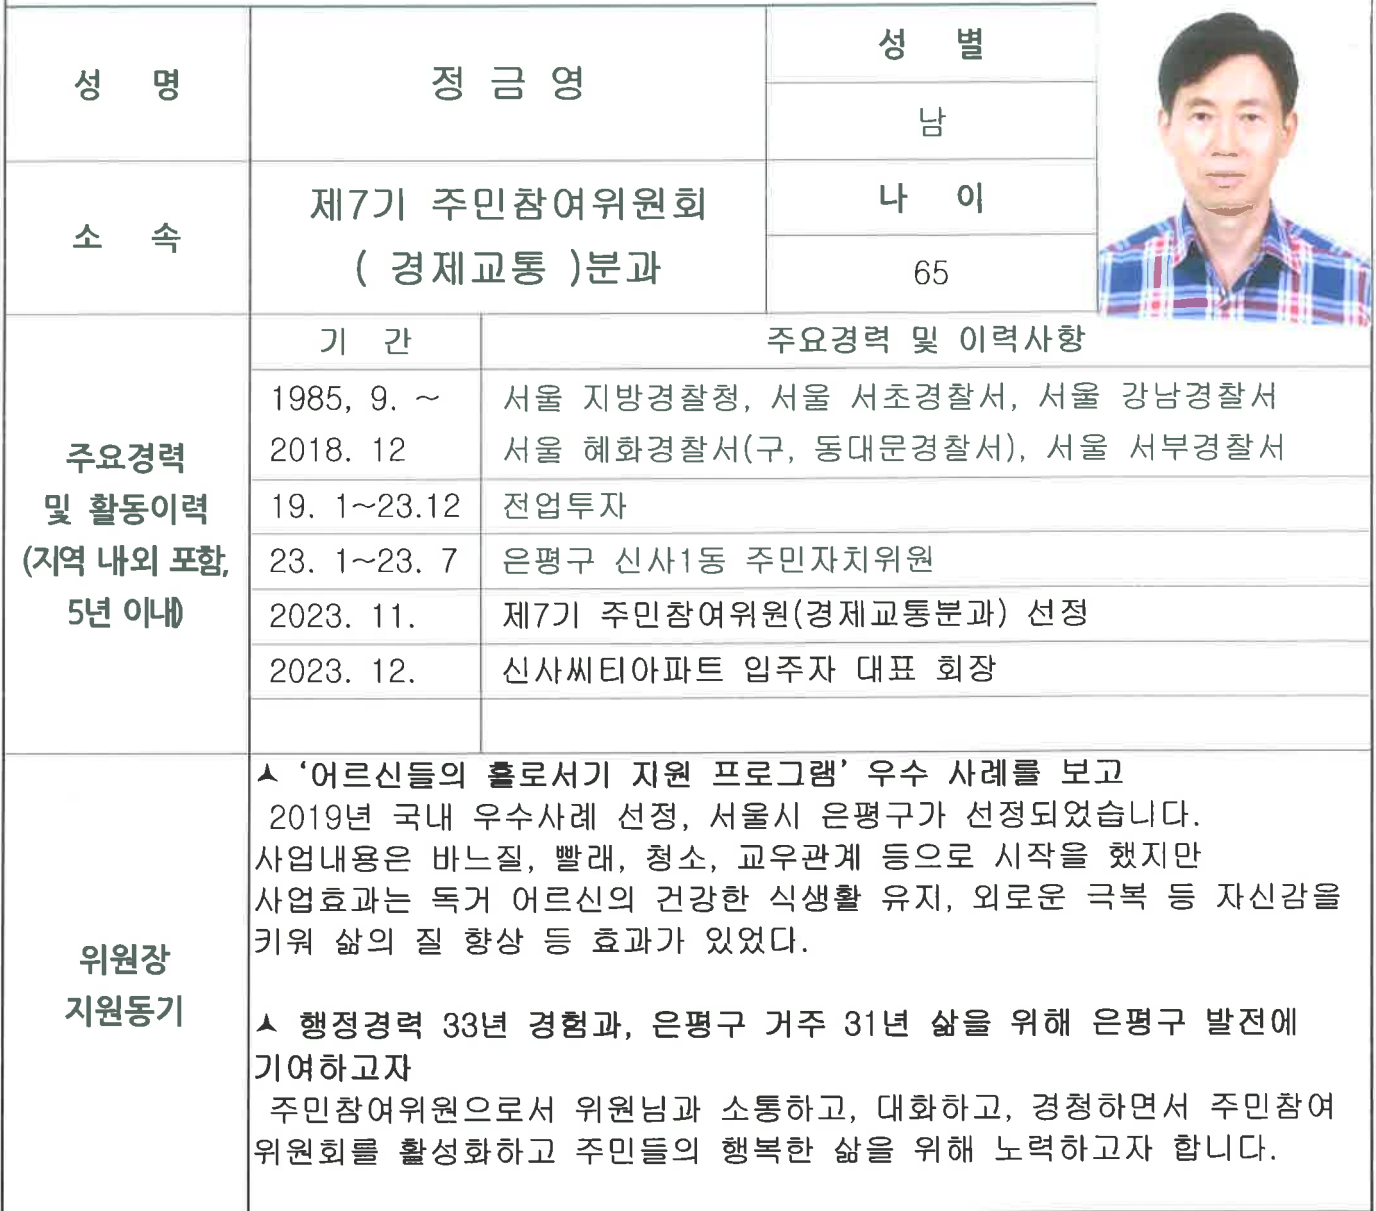 성 명
정 금 영
성 별
남
소 속
제7기 주민참여위원회
( 경제교통 )분과
나 이
65
주요경력
및 활동이력
(지역 내외 포함,
5년 이내)
기 간
주요경력 및 이력사항
1985, 9. ~
2018. 12
서울 지방경찰청, 서울 서초경찰서, 서울 강남경찰서
서울 혜화경찰서(구, 동대문경찰서), 서울 서부경찰서
19. 1~23.12
전업투자
23. 1~23. 7
은평구 신사1동 주민자치위원
2023. 11.
제7기 주민참여위원(경제교통분과) 선정
2023. 12.
신사씨티아파트 입주자 대표 회장
위원장
지원동기
⮝ ‘어르신들의 홀로서기 지원 프로그램’ 우수 사례를 보고
2019년 국내 우수사례 선정, 서울시 은평구가 선정되었습니다.
사업내용은 바느질, 빨래, 청소, 교우관계 등으로 시작을 했지만
사업효과는 독거 어르신의 건강한 식생활 유지, 외로운 극복 등 자신감을
키워 삶의 질 향상 등 효과가 있었다.
⮝ 행정경력 33년 경험과, 은평구 거주 31년 삶을 위해 은평구 발전에
기여하고자
주민참여위원으로서 위원님과 소통하고, 대화하고, 경청하면서 주민참여
위원회를 활성화하고 주민들의 행복한 삶을 위해 노력하고자 합니다.